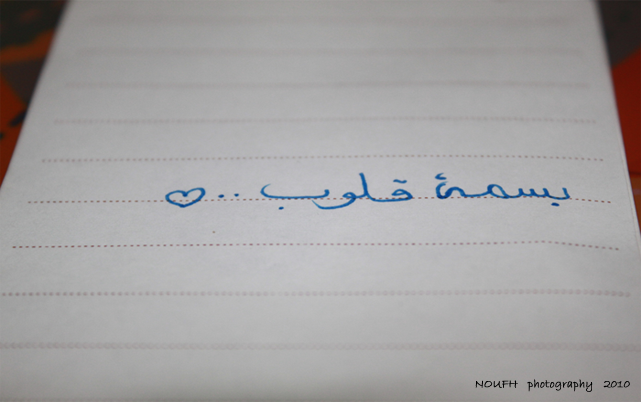 بسمة قلوب .. ♡
NOUFH photography 2010